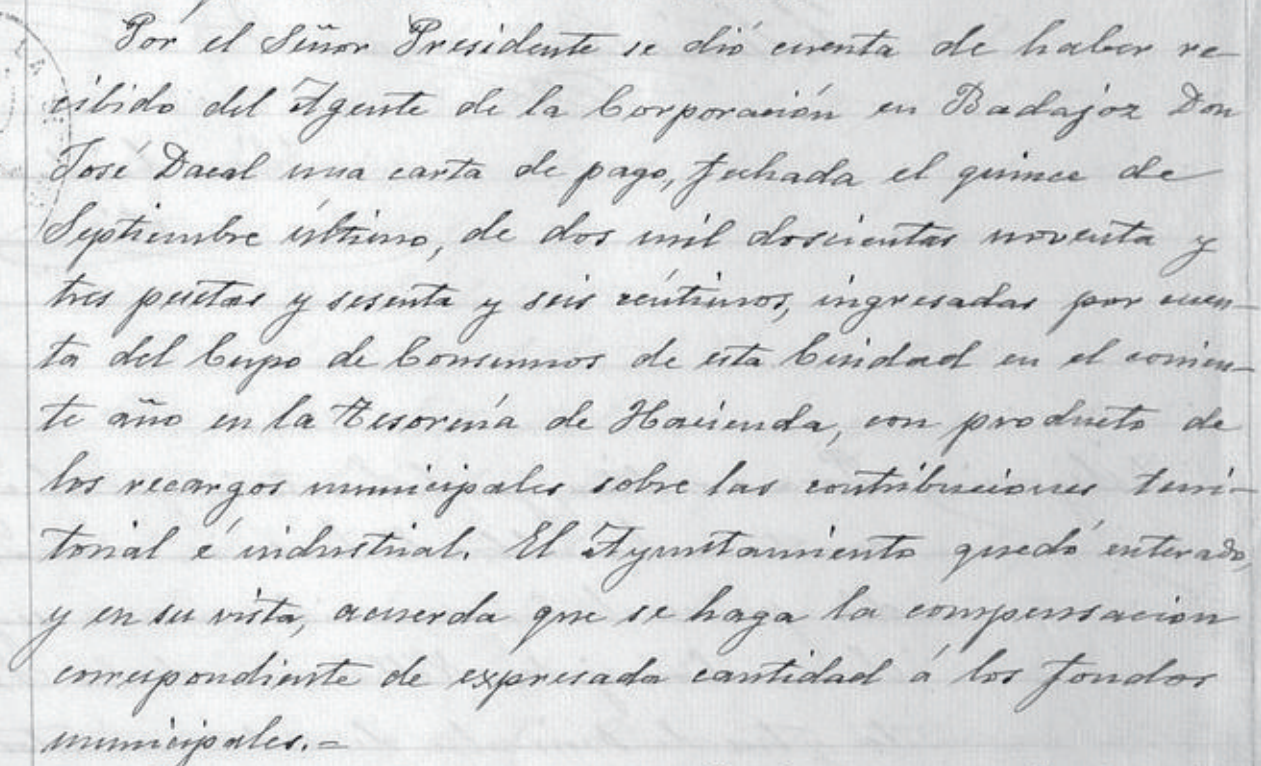 Por el Señor Presidente se dió cuenta de haber re-
cibido del Agente de la Corporación en Badajoz Don
José Dacal una carta de pago, fechada el quince de
Septiembre último, de dos mil doscientas noventa y
tres pesetas y sesenta y seis céntimos, ingresadas por cuen-
ta del Cupo de Consumos de esta Ciudad en el corrien-
te año en la Tesorería de Hacienda, con producto de
los recargos municipales sobre las contribuciones terri-
torial é industrial. El Ayuntamiento quedó enterado,
y en su vista, acuerda que se haga la compensación
correspondiente de expresada cantidad á los fondos
municipales.=